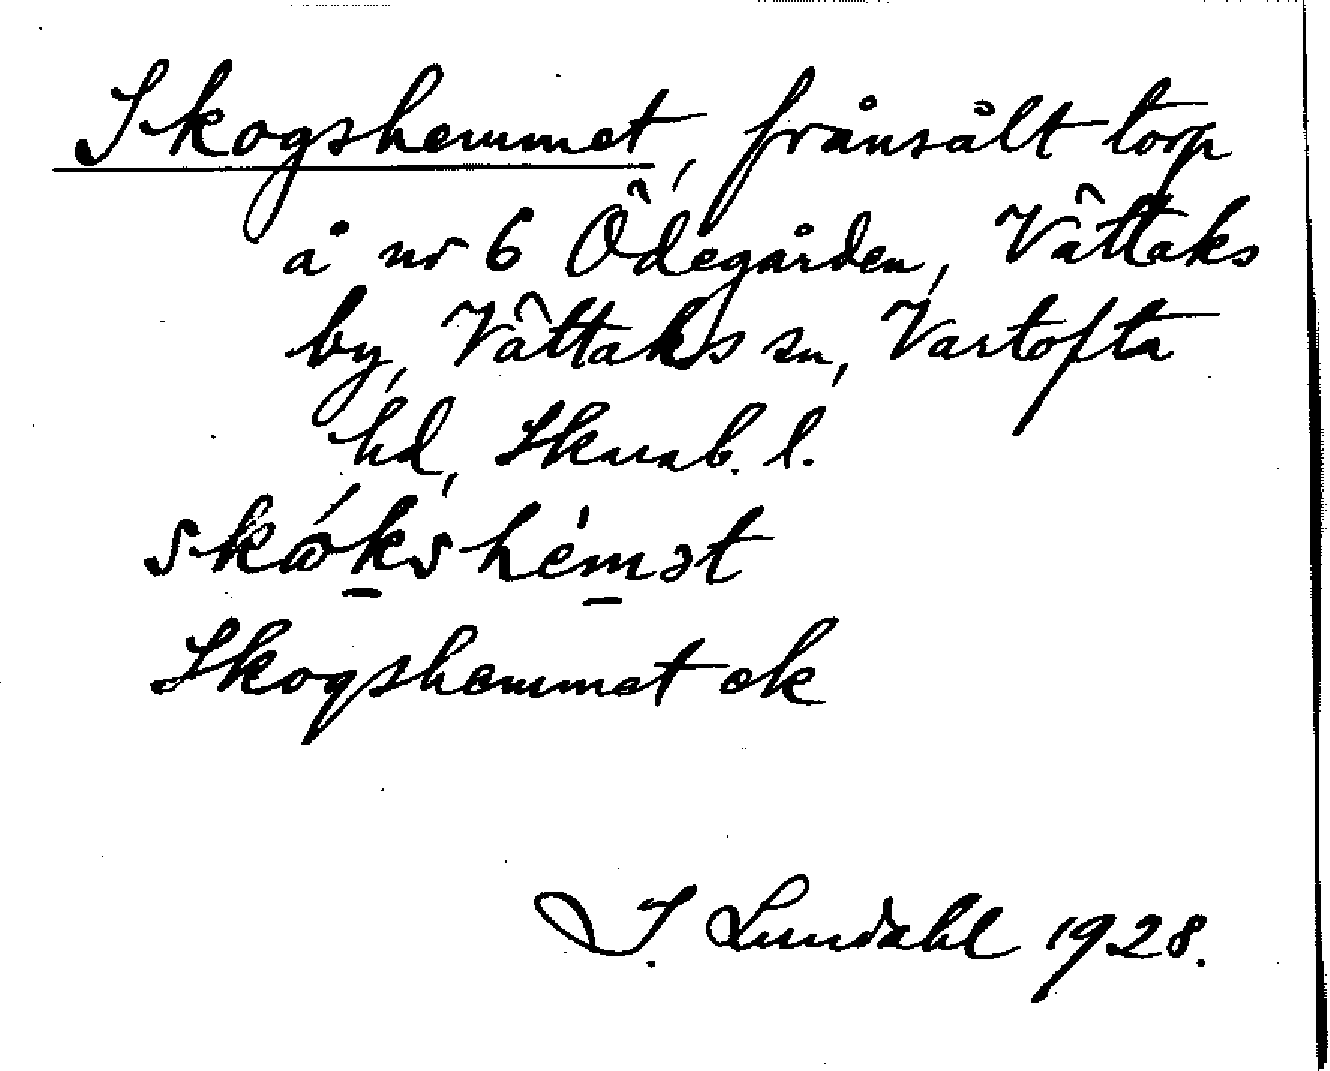 Skogshemmet, frånsålt torp
å nr 6 Ödegården, Vättaks
by, Vättaks sn, Vartofta
hd, Skarab. l.
skωkshemət
Skogshemmet ek
I. Lundahl 1928.